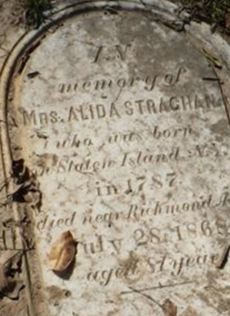 IN
memory of
MRS. ALIDA STRACHAN
who was born
on Staten Island N.Y.
in 1787
died near Richmond
July 28, 1868
aged 81 years